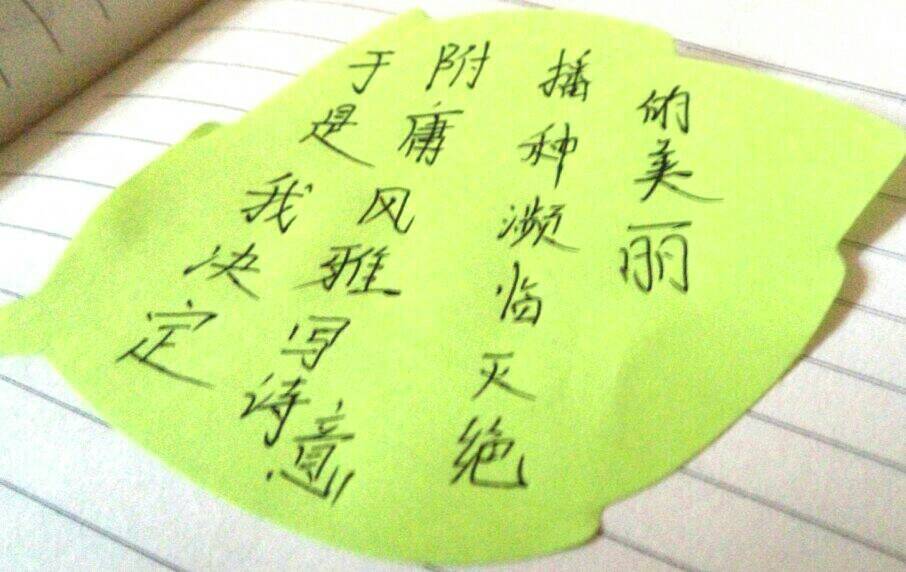 于是我决定
附庸风雅写诗意
播种濒临灭绝
的美丽